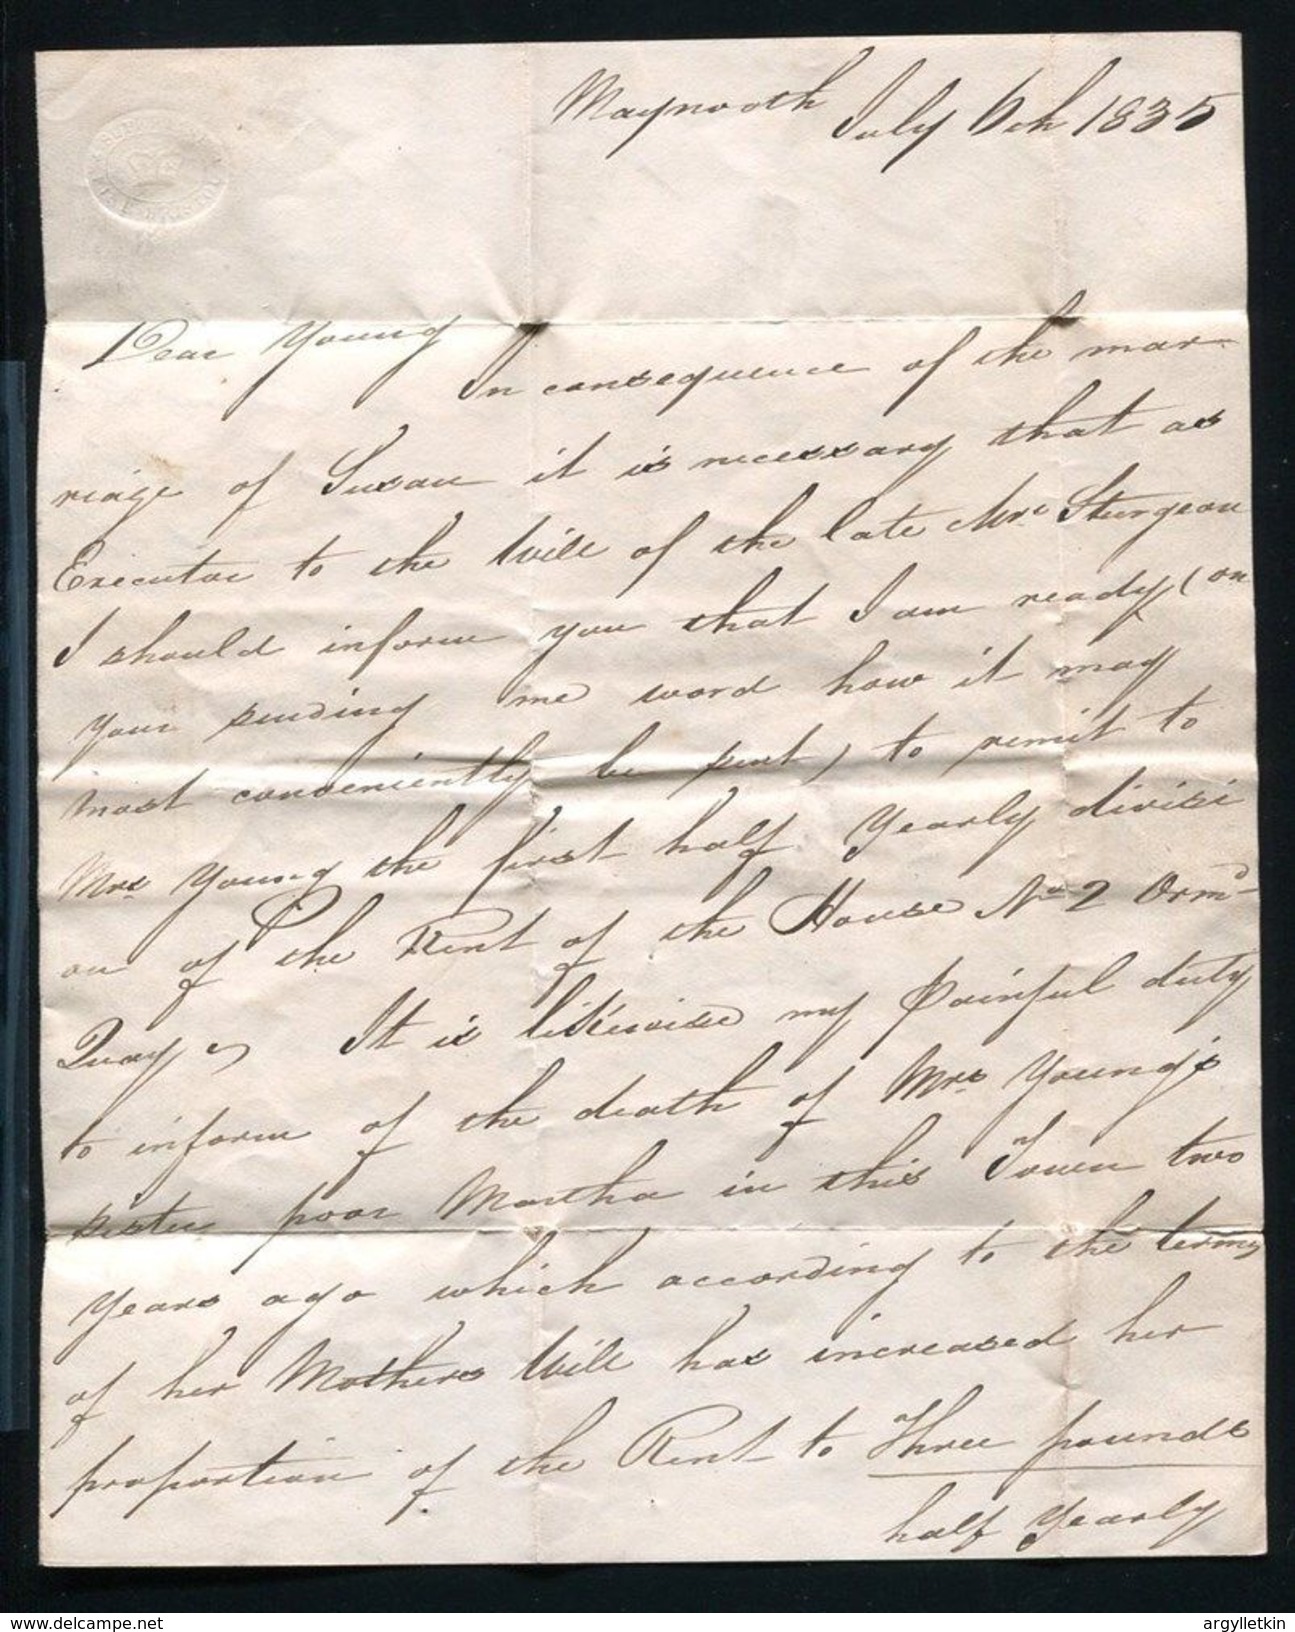 Maynooth July 6th 1835
Dear Young
In consequence of the mar-
riage of Susan it is necessary that as
Executor to the Will of the late Mrs Sturgeon
I should inform you that I am ready (on
your sending me word how it may
most conveniently be sent) to remit to
Mrs Young the first half Yearly divisi
on of the Rent of the House No 2 Ormd
Quay, It is likewise my Painful duty
to inform of the death of Mrs Young's
sister poor Martha in this Town two
Years ago which according to the terms
of her Mothers Will has increased her
proportion of the Rent to Three pounds
half Yearly
argylletkin
www.delcampe.net